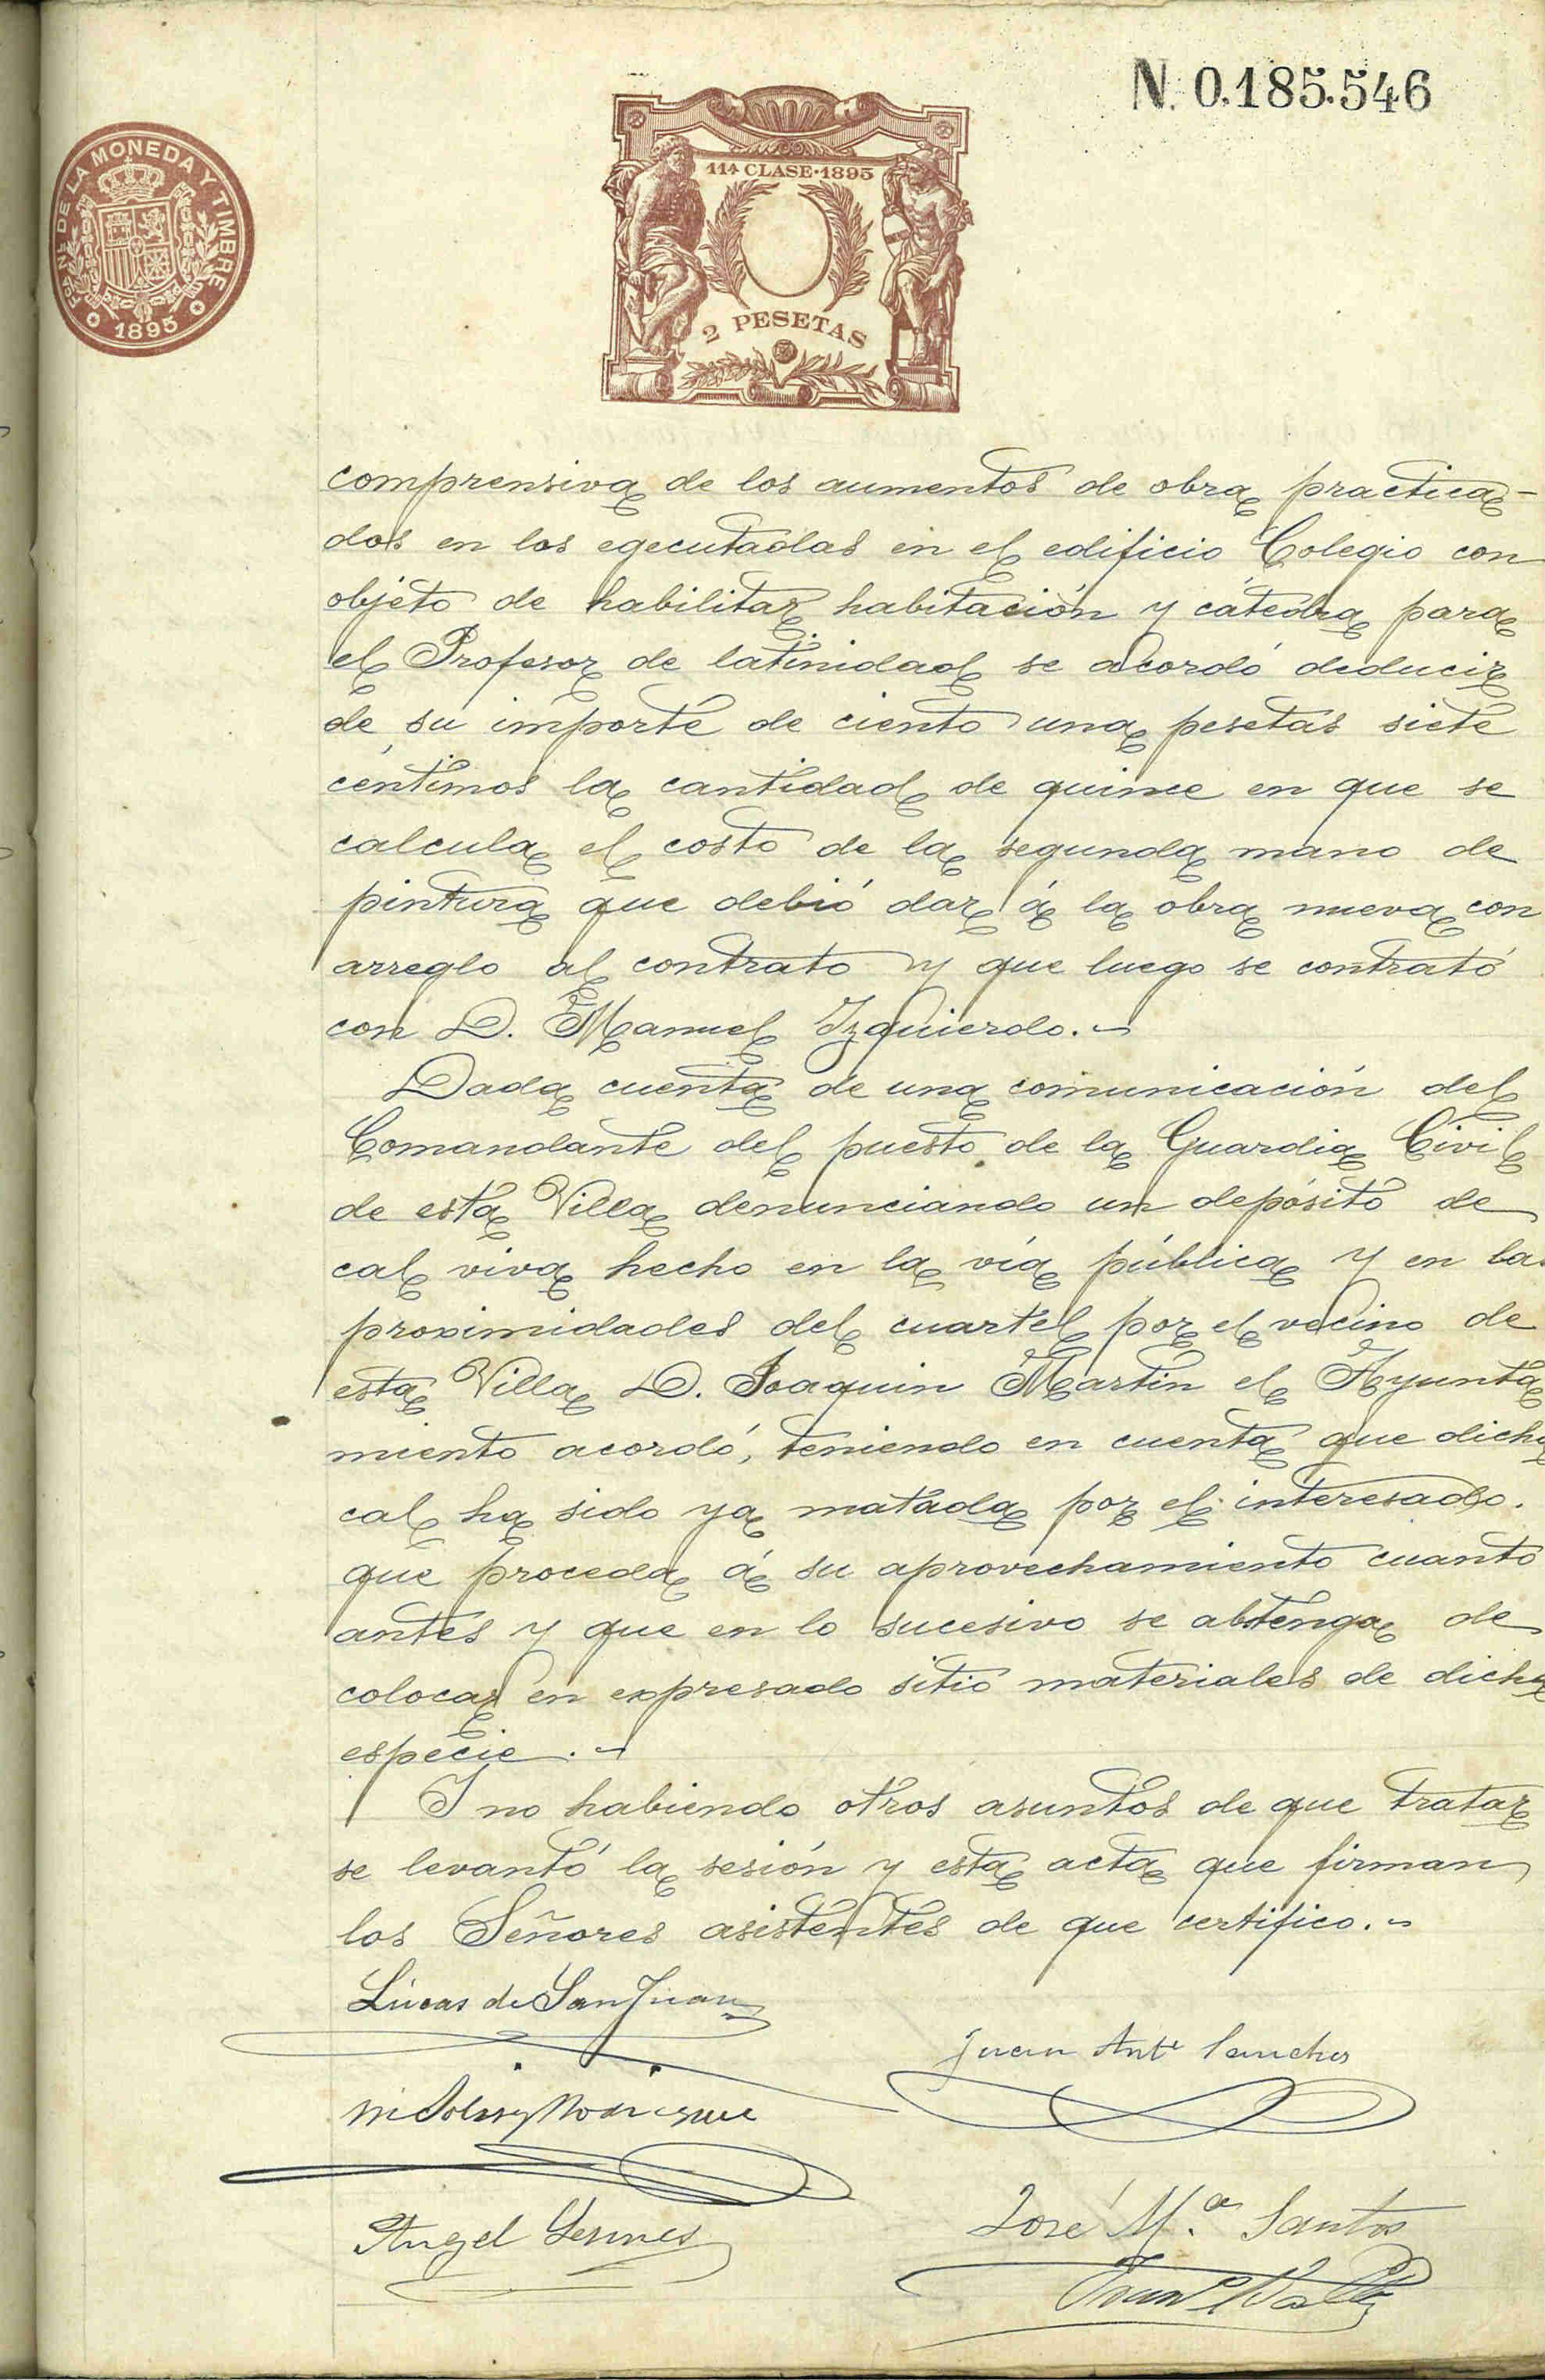 N. 0.185.546
FCA. NL. DE LA MONEDA Y TIMBRE
1895
11ª CLASE·1895
2 PESETAS
comprensiva de los aumentos de obra practica-
dos en las egecutadas en el edificio Colegio con
objeto de habilitar habitación y cátedra para
el Profesor de latinidad se acordó deducir
de su importe de ciento una pesetas siete
céntimos la cantidad de quince en que se
calcula el costo de la segunda mano de
pintura que debió dar á la obra nueva con
arreglo al contrato y que luego se contrató
con D. Manuel Izquierdo.
Dada cuenta de una comunicación del
Comandante del puesto de la Guardia Civil
de esta Villa denunciando un depósito de
cal viva hecho en la vía pública y en las
proximidades del cuartel por el vecino de
esta Villa D. Joaquin Martín el Ayunta
miento acordó, teniendo en cuenta que dicha
cal ha sido ya matada por el interesado.
que proceda á su aprovechamiento cuanto
antes y que en lo sucesivo se abstenga de
colocar en expresado sitio materiales de dicha
especie.
Y no habiendo otros asuntos de que tratar
se levantó la sesión y esta acta que firman
los Señores asistentes de que certifico.
Lúcas de San Juan
Juan Antº Sanchez
Rodriguez
Angel
José M.ª Santos